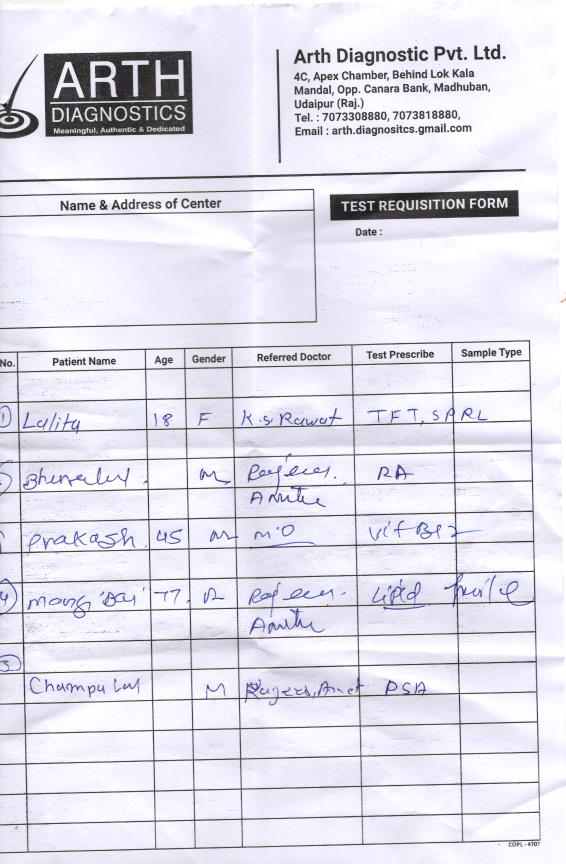 ARTH
DIAGNOSTICS
Meaningful, Authentic & Dedicated
Arth Diagnostic Pvt. Ltd.
4C, Apex Chamber, Behind Lok Kala
Mandal, Opp. Canara Bank, Madhuban,
Udaipur (Raj.)
Tel. : 7073308880, 7073818880,
Email : arth.diagnositcs.gmail.com
Name & Address of Center
TEST REQUISITION FORM
Date :
No. Patient Name Age Gender Referred Doctor Test Prescribe Sample Type
1 Lalita 18 F K.S. Rawat TFT, S PRL
M RA
Prakash 45 M M.O Vit B12
4 Mangi Bai 77 Lipid Profile
5
Champa Lal M PSA
COPL - 4707